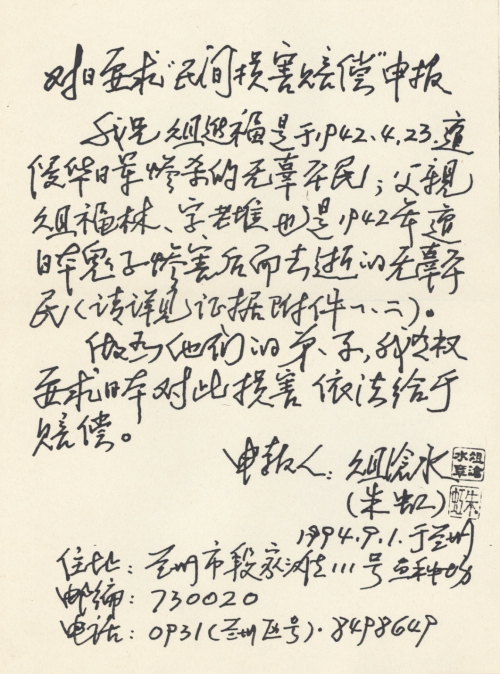 对日要求“民间损害赔偿”申报
我兄俎廷福是于1942.4.23.遭
侵华日军惨杀的无辜平民；父親
俎福林、字老堆也是1942年遭
日本鬼子惨害后而去逝的无辜平
民（请详见证据附件一、二）。
做为他们的弟、子，我有权
要求日本对此损害依法给于
赔偿。
申报人：俎沧水
俎沧水章
（朱虹）
朱虹
1994.9.1.于兰州
住地：兰州市段家滩111号
邮编：730020
电话：0931（兰州区号）·8498649